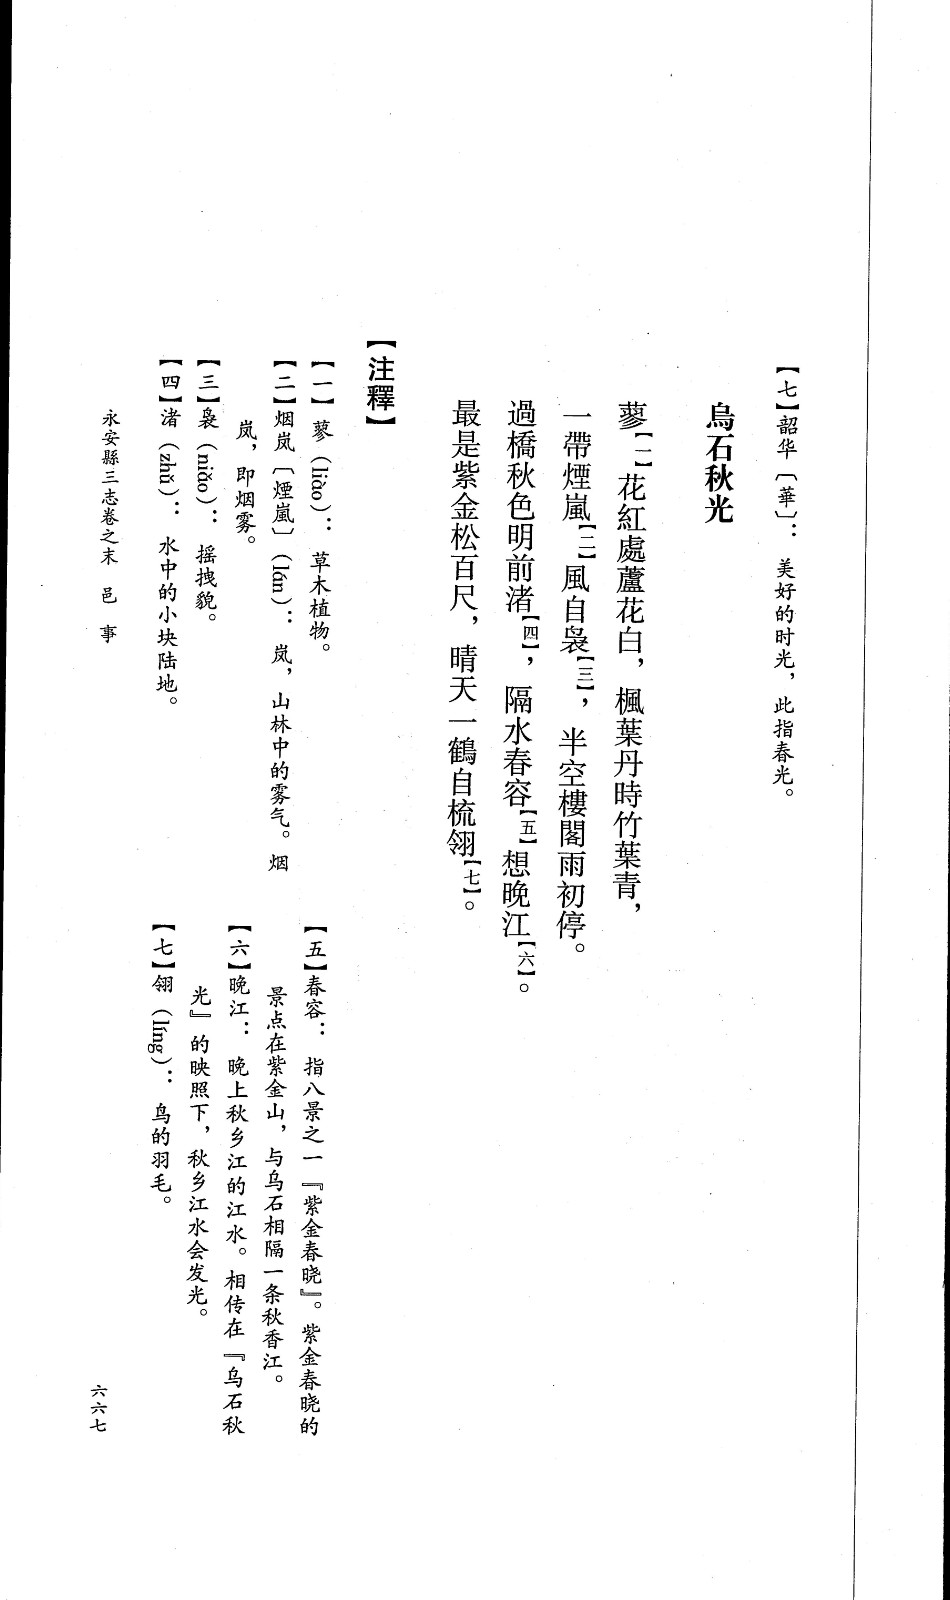 【七】韶华〔華〕： 美好的时光，此指春光。
烏石秋光
蓼【一】花紅處蘆花白，楓葉丹時竹葉青，
一帶煙嵐【二】風自裊【三】，半空樓閣雨初停。
過橋秋色明前渚【四】，隔水春容【五】想晚江【六】。
最是紫金松百尺，晴天一鶴自梳翎【七】。
【注釋】
【一】蓼（liǎo）： 草木植物。
【二】烟岚〔煙嵐〕（lán）： 岚，山林中的雾气。烟
岚，即烟雾。
【三】袅（niǎo）： 摇拽貌。
【四】渚（zhǔ）： 水中的小块陆地。
【五】春容： 指八景之一『紫金春晓』。紫金春晓的
景点在紫金山，与乌石相隔一条秋香江。
【六】晚江： 晚上秋乡江的江水。相传在『乌石秋
光』的映照下，秋乡江水会发光。
【七】翎（líng）： 鸟的羽毛。
永安縣三志卷之末 邑 事
六六七